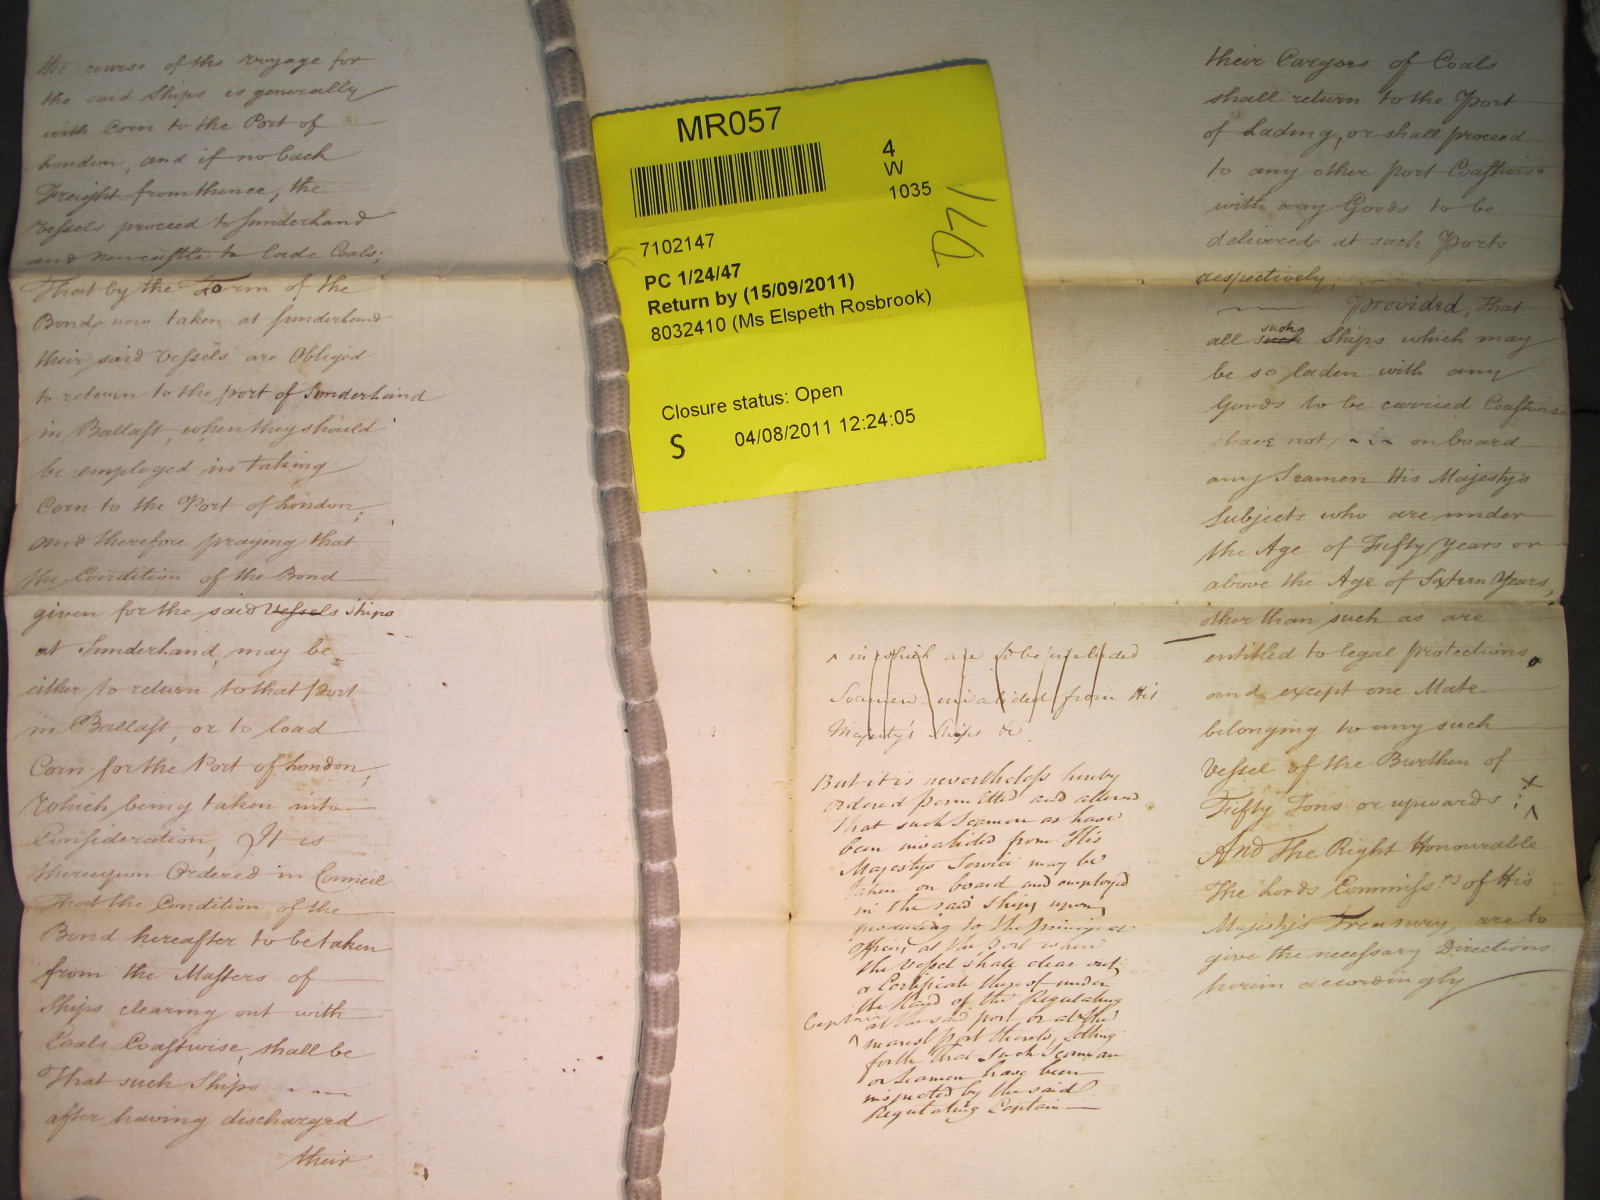 the course of the voyage for
the said Ships is generally
with Corn to the Port of
London, and if no back
Freight from thence, the
Vessels proceed to Sunderland
and newcastle to lade Coals;
That by the Form of the
Bond now taken at Sunderland
their said Vessels are Obliged
to return to the port of Sunderland
in Ballast, when they should
be employed in taking
Corn to the Port of London;
and therefore praying that
the Condition of the Bond
given for the said Vessels Ships
at Sunderland, may be
either to return to that Port
in Ballast, or to load
Corn for the Port of London;
Which being taken into
Consideration, It is
thereupon Ordered in Council
That the Condition of the
Bond hereafter to be taken
from the Masters of
Ships clearing out with
Coals Coastwise, shall be
That such Ships
after having discharged
their
MR057
4
W
1035
D71
7102147
PC 1/24/47
Return by (15/09/2011)
8032410 (Ms Elspeth Rosbrook)
Closure status: Open
S 04/08/2011 12:24:05
^ in which are to be included
Seamen invalided from His
Majesty's Ships &c
But it is nevertheless hereby
ordered permitted and allowed
that such Seamen as have
been invalided from His
Majestys Service may be
taken on board and employed
in the said Ships upon
producing to the
at the Port where
the Vessel shall clear out,
a Certificate thereof under
the Hand of the Regulating
Captain at the said port or at the
^ nearest port thereto, setting
forth that such Seaman
or Seamen have been
inspected by the said
Regulating Captain
their Cargoes of Coals
shall return to the Port
of Lading, or shall proceed
to any other port Coastwise
with any Goods to be
delivered at such Ports
respectively,
Provided, that
such
all such Ships which may
be so laden with any
Goods to be carried Coastwise
have not, on board
any Seamen His Majesty's
Subjects who are under
the Age of Fifty Years or
above the Age of Sixteen Years,
other than such as are
entitled to legal protections,
and except one Mate
belonging to any such
Vessel of the Burthen of
Fifty Tons or upwards; x
^
And The Right Honourable
The Lords Commiss.rs of His
Majesty's Treasury, are to
give the necessary Directions
herein accordingly